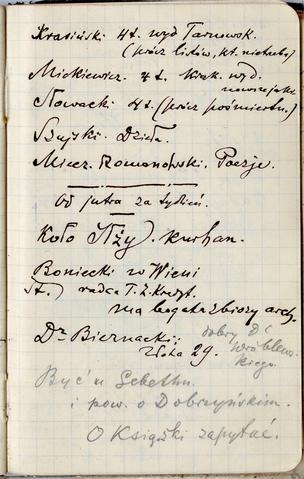 Krasiński 4 t. wyd Tarnowsk.
(prócz listów, kt. nietrzeba)
Mickiewicz. 4 t. Krak. wyd.
nowsze jakie
Słowacki 4 t. (prócz pośmiertn.)
Szujski. Dzieła.
Miecz. Romanowski. Poezje.
Od jutra za tydzień.
Koło (Iży). kurhan.
Boniecki w Wieni
radca T. Z. Kredyt.
ma bogate zbiory arch.
Dr Biernacki;
Złota 29.
dobry Dr
Wróblew-
skiego
Być u Gebethn.
i pow. o Dobrzyńskim.
O Książki zapytać.